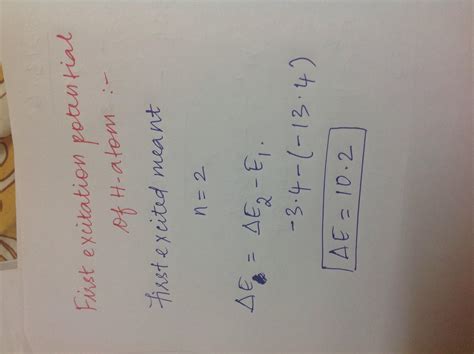 First excitation potential
of H-atom :-
first excited meant
n = 2
ΔE = ΔE₂ - E₁.
-3.4 - (-13.4)
ΔE = 10.2